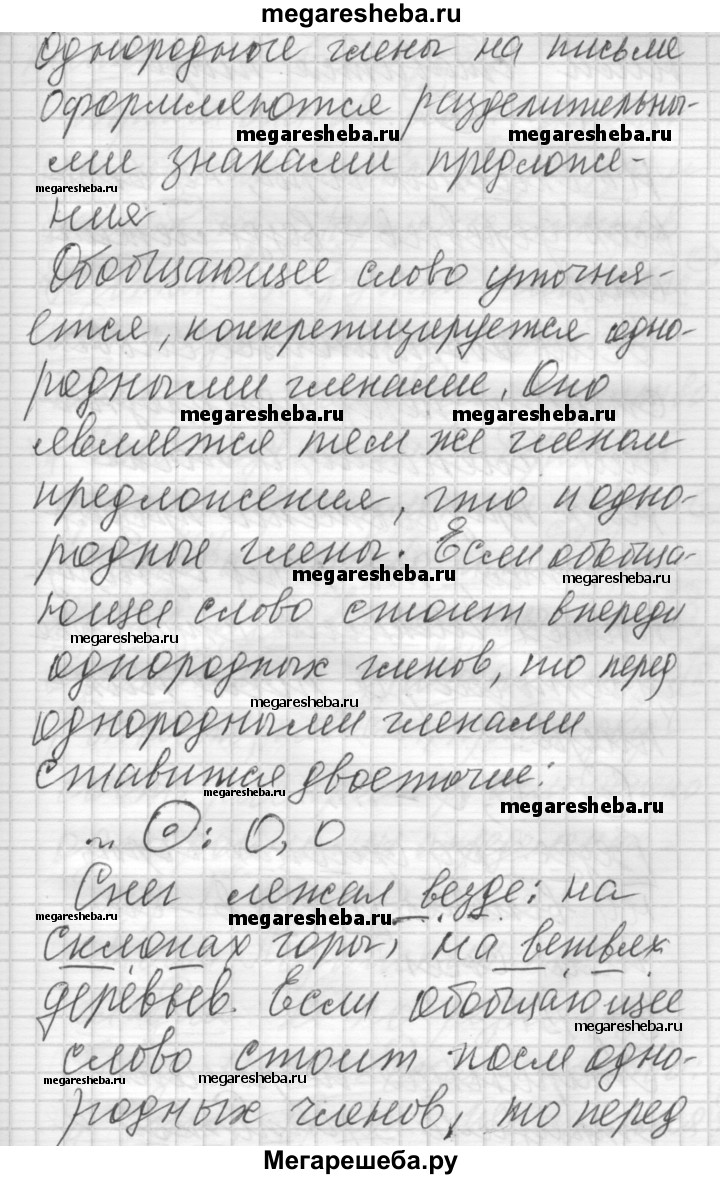 megaresheba.ru
однородные члены на письме
оформляются разделительны-
megaresheba.ru megaresheba.ru
ми знаками предложе-
megaresheba.ru
ния.
Обобщающее слово уточня-
ется, конкретицируется одно-
родными членами. Оно
megaresheba.ru megaresheba.ru
является тем же членом
предложения, что и одно-
родные члены. Если обобща-
megaresheba.ru megaresheba.ru
ющее слово стоит впереди
megaresheba.ru
однородных членов, то перед
megaresheba.ru
однородными членами
ставится двоеточие:
megaresheba.ru megaresheba.ru
... О: О, О
Снег лежал везде: на
megaresheba.ru megaresheba.ru
склонах горы, на ветвях
деревьев. Если обобщающее
megaresheba.ru
слово стоит после одно-
megaresheba.ru megaresheba.ru
родных членов, то перед
Мегарешеба.ру